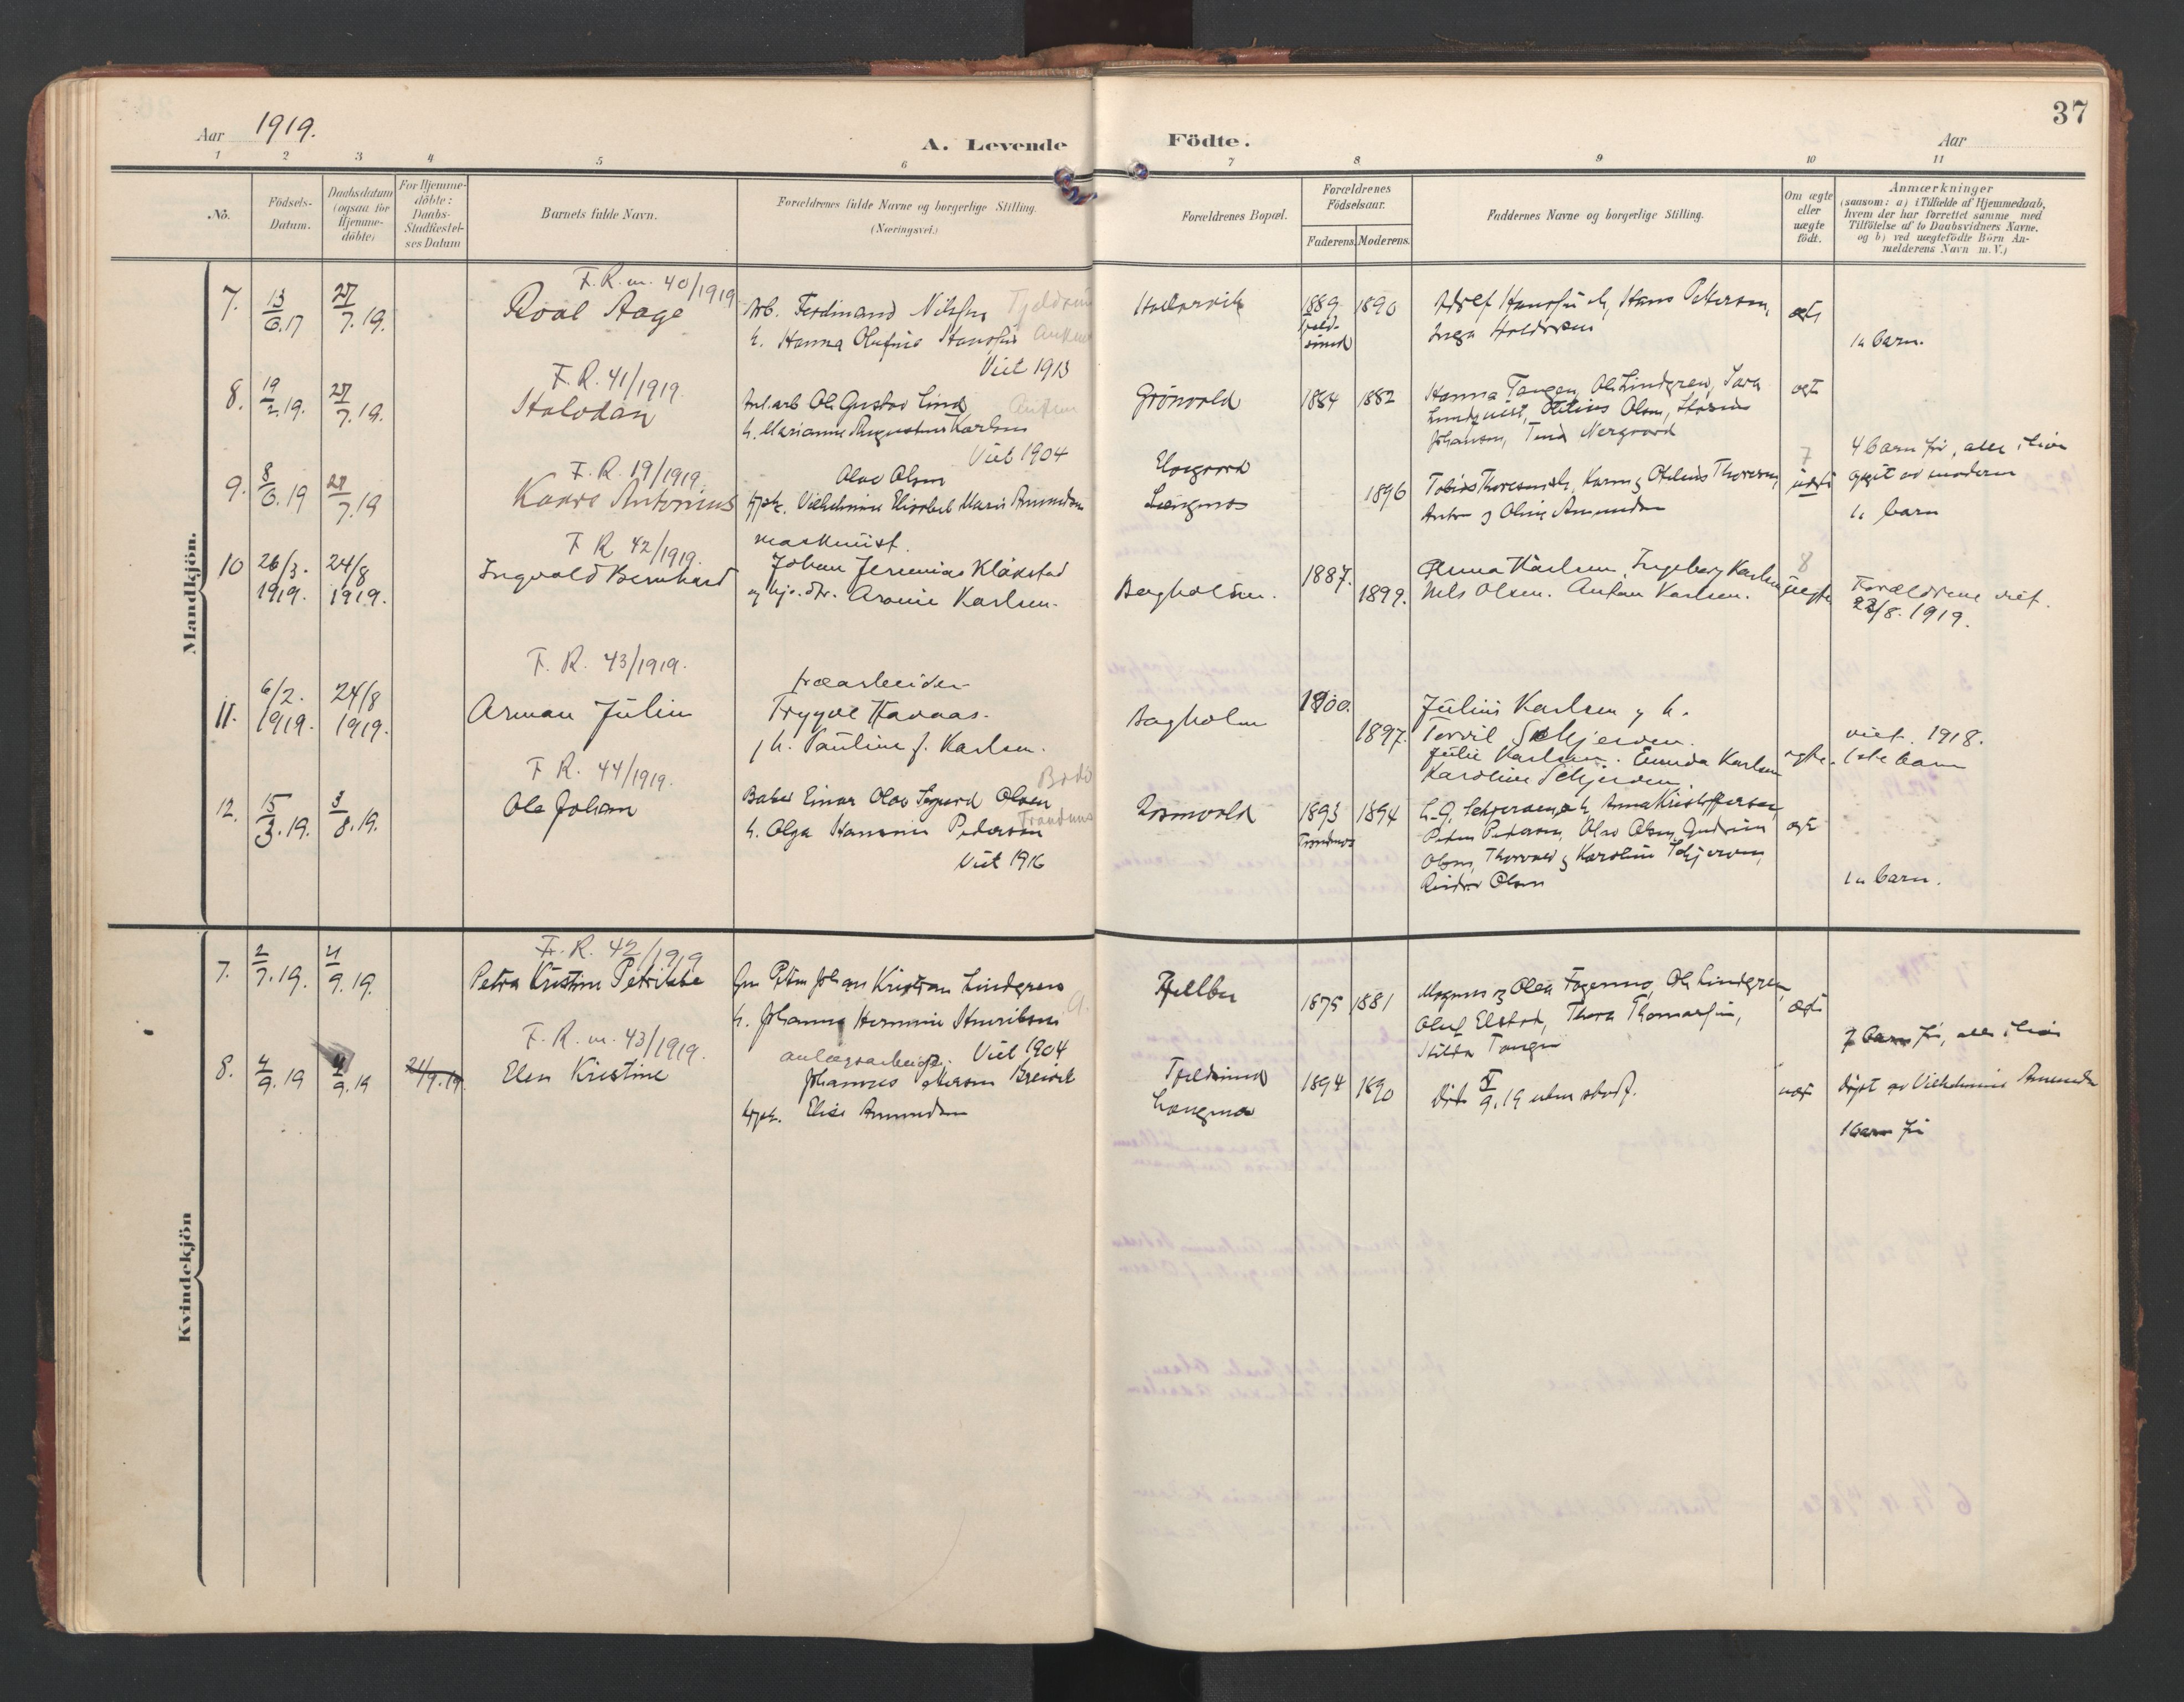 Aar 1919.
A. Levende
Födte.
Aar
37
1 2 3 4 5 6 7 8 9 10 11
No.
Födsels-
Datum.
Daabsdatum
(ogsaa for
Hjemme-
döbte)
For Hjemme-
döbte:
Daabs-
Stadfæstel-
ses Datum
Barnets fulde Navn.
Forældrenes fulde Navne og borgerlige Stilling.
(Næringsvei.)
Forældrenes Bopæl.
Forældrenes
Födselsaar.
Faderens. Moderens.
Faddernes Navne og borgerlige Stilling.
Om ægte
eller
uægte
født.
Anmærkninger
(saasom: a) i Tilfælde af Hjemmedaab,
hvem der har forrettet samme med
Tilföielse af to Daabsvidners Navne.
og b) ved uægtefödte Börn An-
melderens Navn m. V.)
Mandkjön.
F. R. m. 40/1919
7. 13/6.17 27/7.19. Roal Aage
Arb. Ferdinand Nilsen
h. Hanna Olufine
Viet 1913
1889 1890
Hans Pettersen,
Inga
1ste barn.
F. R. 41/1919.
8. 19/2.19. 27/7.19. Halvdan
Anl.arb Ole Gustav Lind
h. Marianne Augustine Karlsen
Viet 1904
Grönvold 1884 1882
Hanna Tangen, Ole Lindgren, Sara
Lundquist, Otilius Olsen,
Johansen, Nergaard
ægte
4 barn før, alle i live
F. R. 19/1919.
9. 8/6.19 27/7.19 Kaare Antonius
Olav Olsen
Vilhelmine Elisabet Marie Amundsen
Elvegaard
Længnes
1896
Tobias Thoresen Karen og Otelius Thoresen
Anton og Oline Amundsen
7
uægte
opgit av moderen
1. barn
F R 42/1919.
10 26/3. 1919. 24/8 1919. Ingvald Bernhard
maskinist.
Johan Jeremias Klåkstad
og hjv. dtr. Aronie Karlsen.
Bergholm. 1887. 1899.
Anna Karlsen, Ingeborg Karlsen
Nils Olsen. Anton Karlsen.
8
uegte
Forældrene viet.
22/8. 1919.
F. R. 43/1919.
11. 6/2. 1919. 24/8 1919. Arman Julin
træarbeider
Trygve Havaas.
h. Pauline f. Karlsen.
Bagholm 1900. 1897.
Julius Karlsen og h.
Torvil Schjerven.
Julie Karlsen. Emmda Karlsen
Karoline Schjerven
egte.
viet. 1918.
1ste barn
F R. 44/1919.
12. 15/3.19. 3/8.19. Ole Johan
Bodö
Baker Einar Olav Sigurd Olsen
h. Olga Hansine Pedersen
Viet 1916
1893 1894
Anna Kristoffersen,
Peter Pedersen, Olav Olsen, Gudrun
Olsen, Thorvald og Karoline Schjerven,
Olsen
ægte
1ste barn.
Kvindekjön
F. R. 42/1919
7. 2/7.19. 4/9.19. Petra Kristine Petrikke
Peter Johan Kristian Lindgren
h. Johanna Hermine Henriksen
Viet 1904
1875 1881
Magnus og Olea Fagernes, Ole Lindgren,
Oluf Elstad, Thora Thomassen,
Hilda Tangen
ægte
7 barn før, alle i live
F. R. m. 43/1919.
8. 4/9.19 4/9.19 21/9.19. Elen Kristine
anlægsarbeider.
Johannes Pettersen Breivik
Elise Amundsen
Tjeldsund
Længnes
1894 1890
Död 5/9.19 uten stadf.
uægte
döpt av Vilhelmine Amundsen
1 barn før